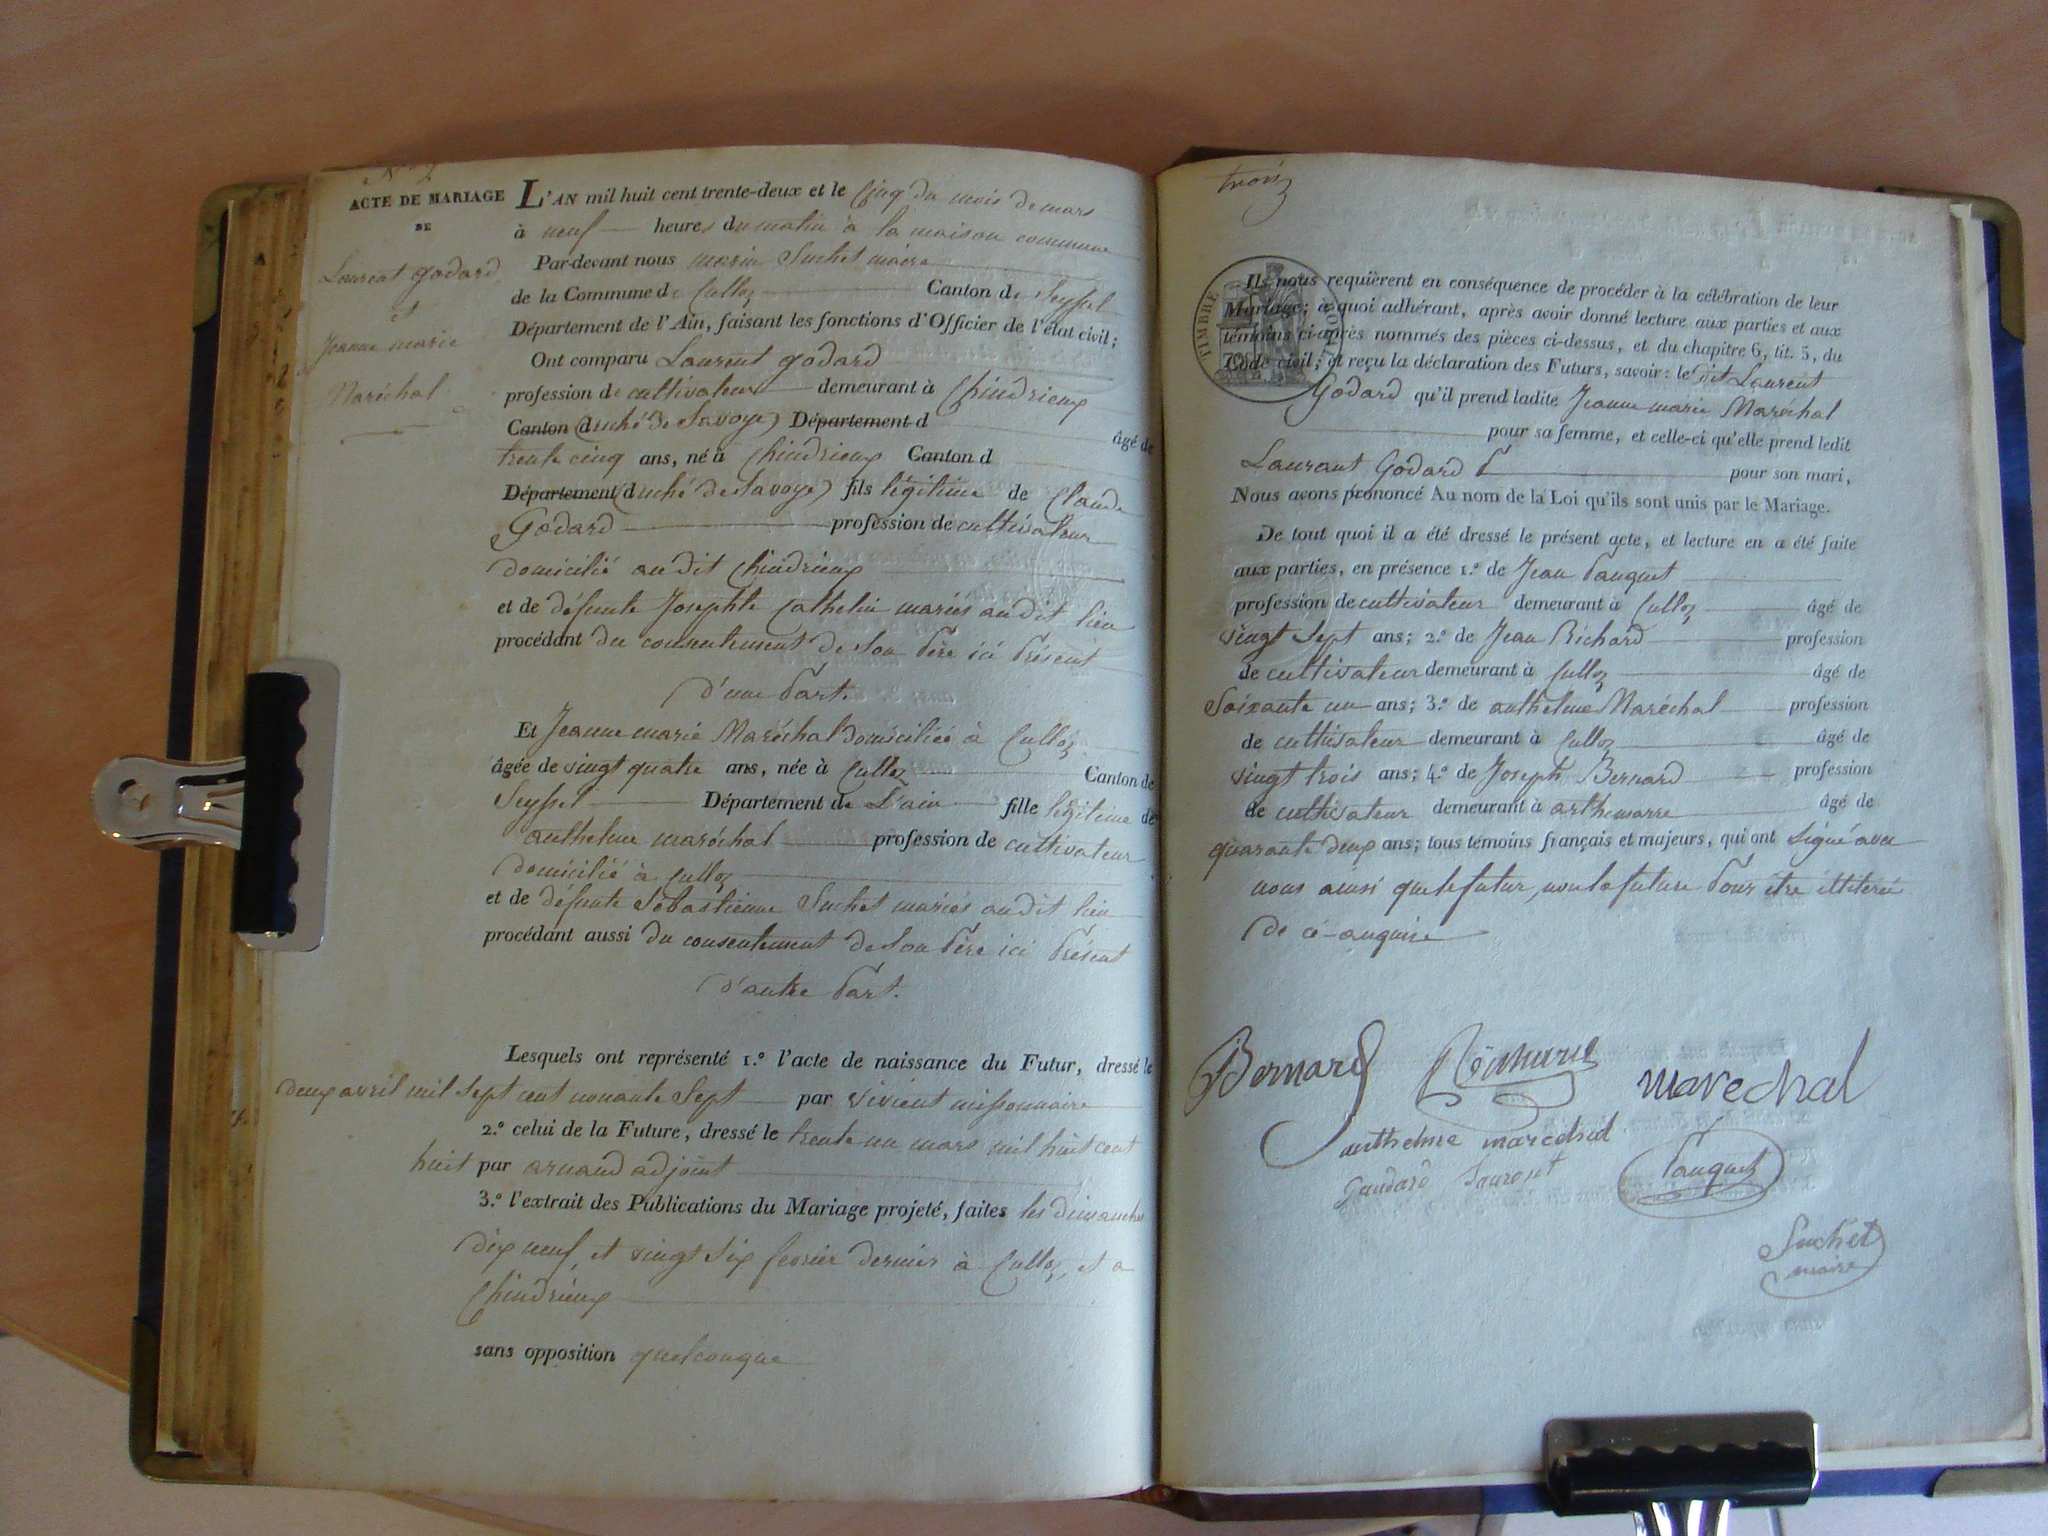 N° 2
ACTE DE MARIAGE
DE
Laurent godard
et
Jeanne marie
Maréchal
L'AN mil huit cent trente-deux et le Cinq du mois de mars
à neuf heures du matin à la maison commune
Par-devant nous marin Suchet maire
de la Commune de Culloz Canton de Seyssel
Département de l'Ain, faisant les fonctions d'Officier de l'état civil;
Ont comparu Laurent godard
profession de cultivateur demeurant à Chindrieux
Canton duché de Savoye) Département d
âgé de
trente cinq ans, né à Chindrieux Canton d
Département (duché de Savoye) fils légitime de Claude
Godard profession de cultivateur
domicilié au dit Chindrieux
et de défunte Josephte Cathelin mariés au dit lieu
procédant du consentement de son Père ici Présent
d'une Part.
Et Jeanne marie Maréchal domiciliée à Culloz
âgée de vingt quatre ans, née à Culloz Canton de
Seyssel Département de L'ain fille légitime de
anthelme maréchal profession de cultivateur
domicilié à Culloz
et de défunte Sébastienne Suchet mariés au dit lieu
procédant aussi du consentement de son Père ici Présent
d'autre Part.
Lesquels ont représenté 1.° l'acte de naissance du Futur, dressé le
deux avril mil sept cent nonante sept par Vivient missonnaire
2.° celui de la Future, dressé le trente un mars mil huit cent
huit par arnaud adjoint
3.° l'extrait des Publications du Mariage projeté, faites les dimanches
dix neuf, et vingt six fevrier dernier à Culloz, et a
Chindrieux
sans opposition quelconque
trois
TIMBRE
Ils nous requièrent en conséquence de procéder à la célébration de leur
Mariage; à quoi adhérant, après avoir donné lecture aux parties et aux
témoins ci-après nommés des pièces ci-dessus, et du chapitre 6, tit. 5, du
Code civil; et reçu la déclaration des Futurs, savoir: le dit Laurent
Godard qu'il prend ladite Jeanne marie Maréchal
pour sa femme, et celle-ci qu'elle prend ledit
Laurant Godard pour son mari,
Nous avons prononcé Au nom de la Loi qu'ils sont unis par le Mariage.
De tout quoi il a été dressé le présent acte, et lecture en a été faite
aux parties, en présence 1.° de Jean Pauquet
profession de cultivateur demeurant à Culloz âgé de
vingt sept ans; 2.° de Jean Richard profession
de cultivateur demeurant à Culloz âgé de
Soixante un ans; 3.° de anthelme Maréchal profession
de cultivateur demeurant à Culloz âgé de
vingt trois ans; 4.° de Joseph Bernard profession
de cultivateur demeurant à arthemarre âgé de
quarante deux ans; tous témoins français et majeurs, qui ont signé avec
nous ainsi que le futur, non la future Pour être illiterée
de ce enquise
Bernard
marechal
anthelme marechal
Gaudard Laurent Pauquet
Suchet
maire